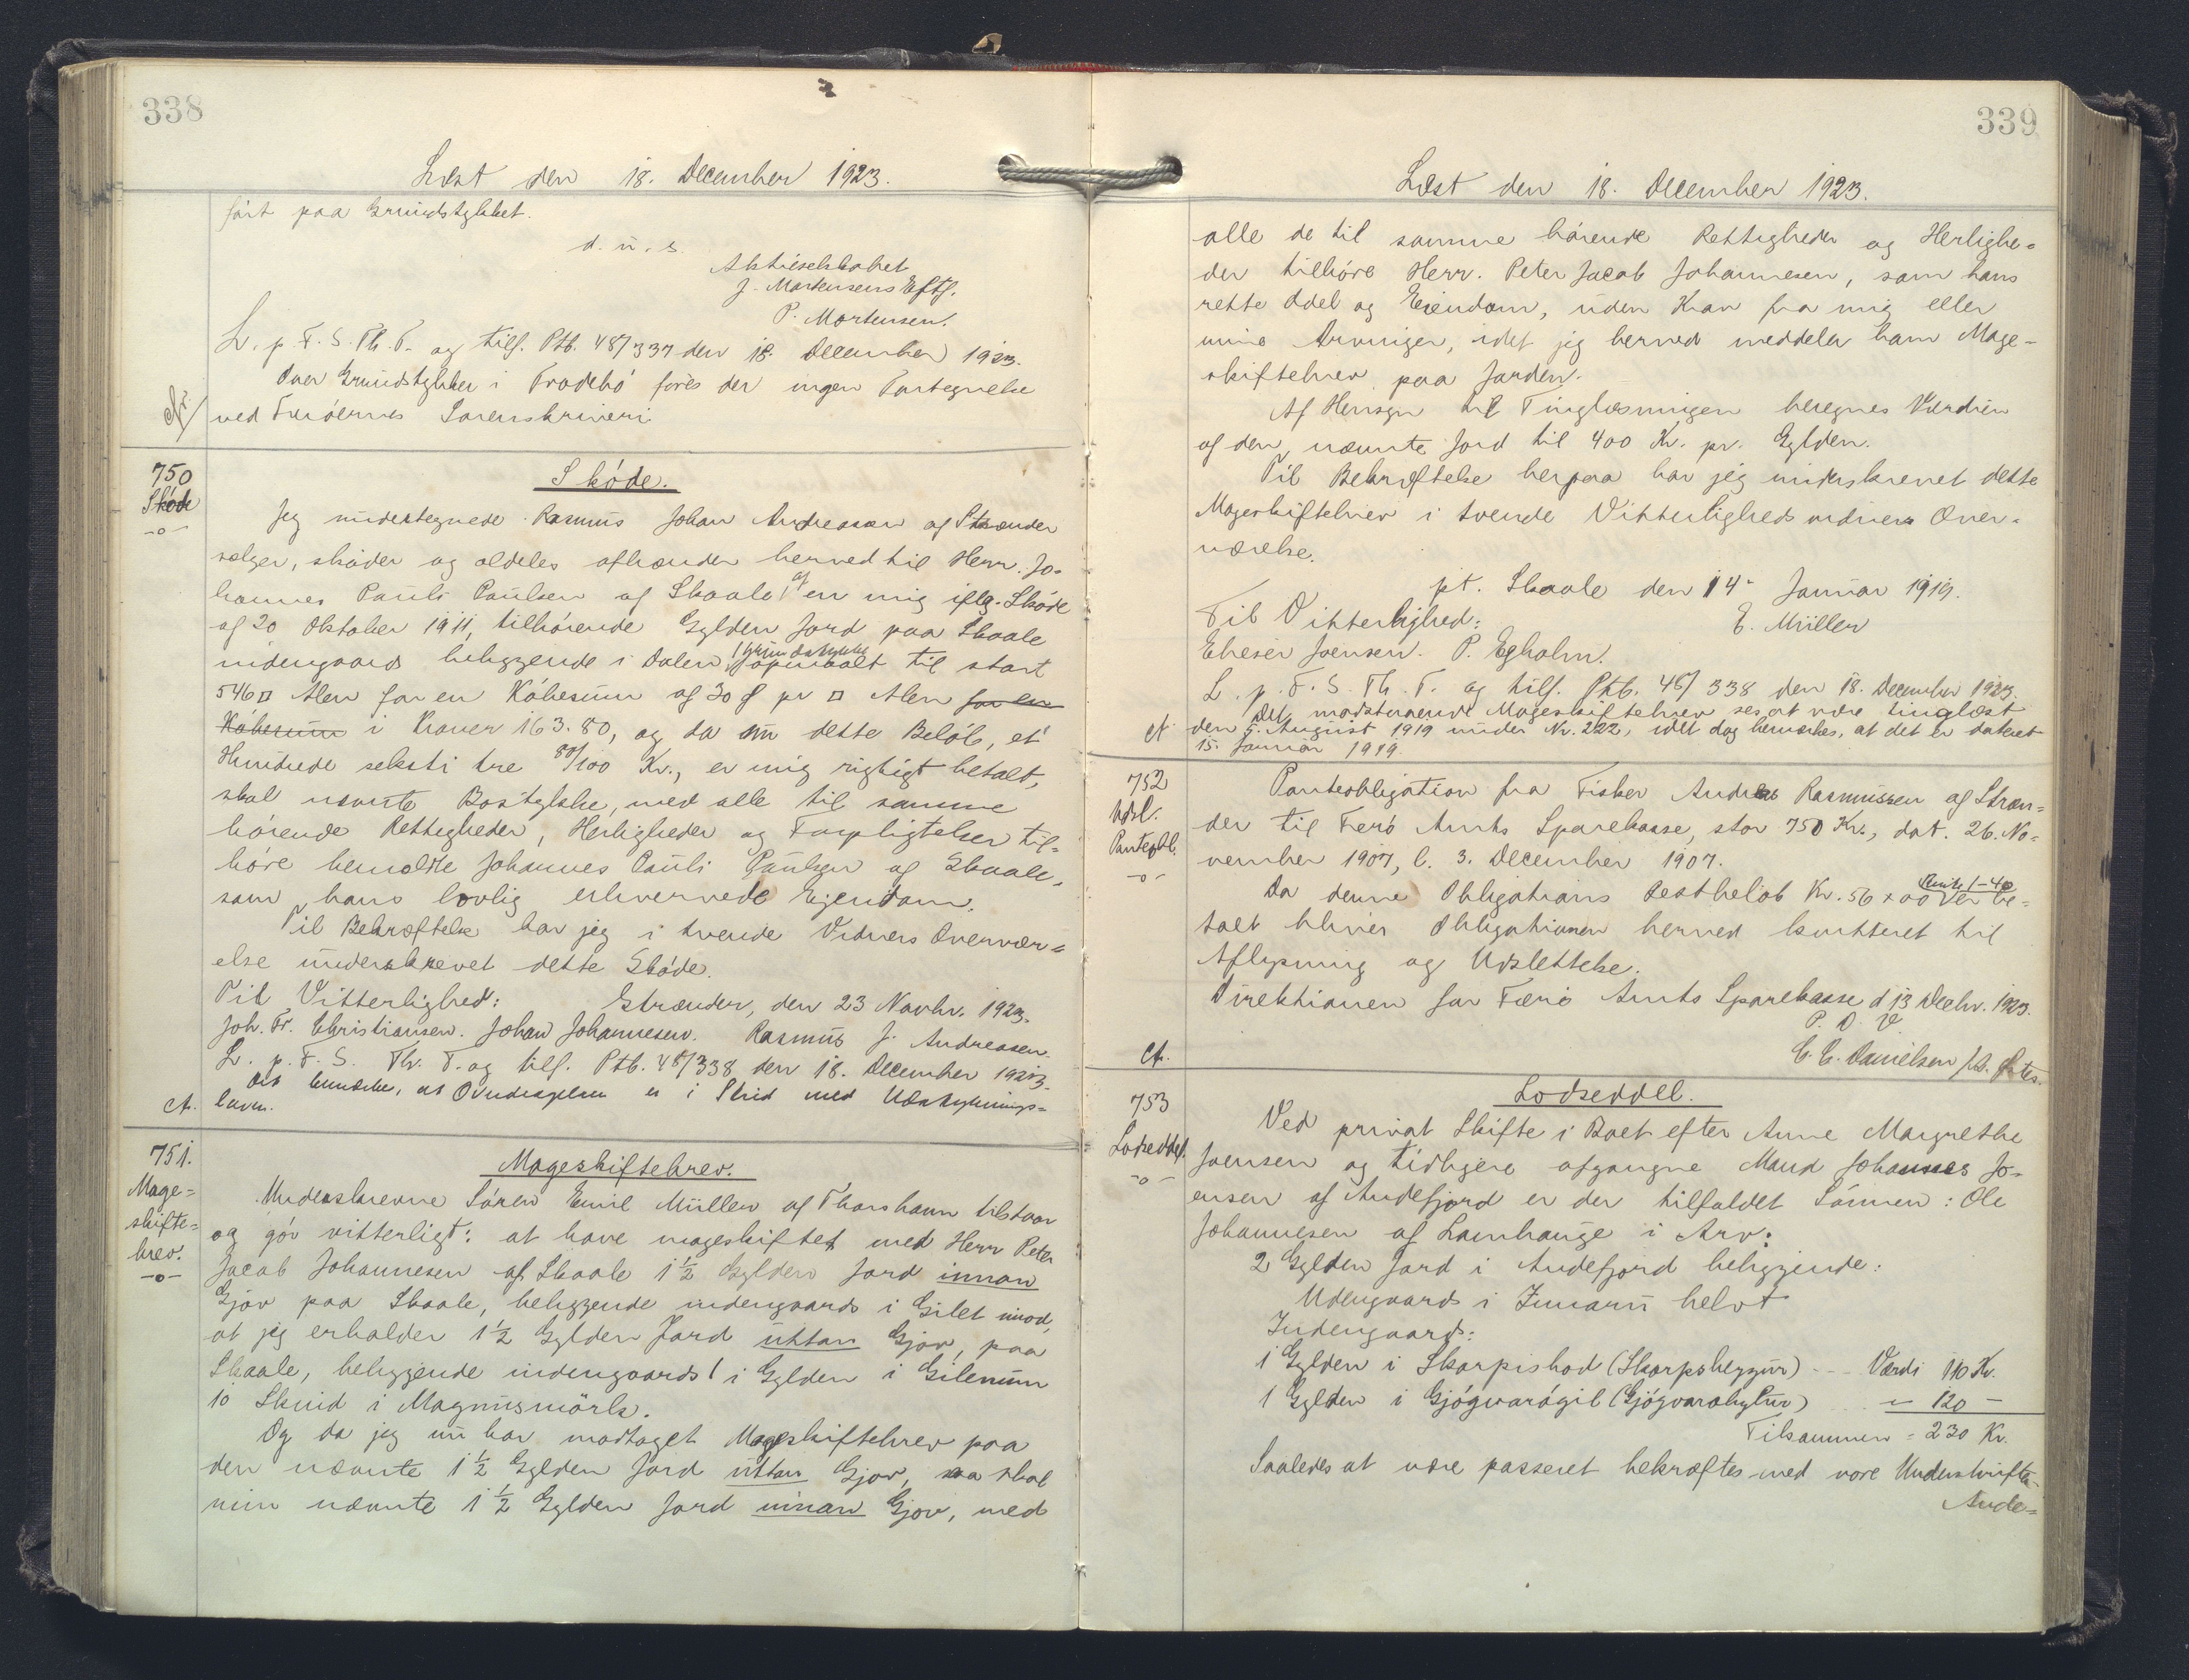 338
Læst den 18. December 1923.
ført paa Grundstykket.
d. u. s.
Aktieselskabet
J. Mortensens Eftf.
P. Mortensen.
L. p. F. S. Th. T. og tilf. Ptb. 48/337 den 18. December 1923.
Over Grundstykker i Trodebø føres der ingen Fortegnelse
ved Færøernes Sorenskriveri
750
Skøde
-o-
Skøde.
Jeg undertegnede Rasmus Johan Andreasen af Strænder
sælger, skøder og aldeles afhænder herved til Herr. Jo-
hannes Pauli Paulsen af Skaale af en mig iflg. Skøde
af 20 Oktober 1911, tilhørende Gylden Jord paa Skaale
indengaards beliggende i Dalen, Grundstykke opmaalt til stort
546 □ Alen for en Købesum af 30 Ø pr □ Alen for en
Købesum i Kroner 163.80, og da nu dette Beløb, et
Hundrede seksti tre 80/100 Kr., er mig rigtigt betalt,
skal nævnte Bostykke, med alle til samme
hørende Rettigheder, Herligheder og Forpligtelser til-
høre bemeldte Johannes Pauli Paulsen af Skaale,
som hans lovlig erhvervede Ejendom.
Til Bekræftelse har jeg i tvende Vidners Overvær=
else underskrevet dette Skøde.
Til Vitterlighed: Strænder, den 23 Novbr. 1923.
Joh. Fr. Christiansen. Johan Johannesen. Rasmus J. Andreasen.
L. p. F. S. Th. T. og tilf. Ptb. 48/338 den 18. December 1923.
Det bemærkes, at Overdragelsen er i Strid med Udstyknings=
loven.
751.
Mage=
skifte=
brev.
-o-
Mageskiftebrev.
Underskrevne Søren Emil Müller af Thorshavn tilstaar
og gør vitterligt: at have mageskiftet med Herr Peter
Jacob Johannesen af Skaale 1½ Gylden Jord innan
Gjov paa Skaale, beliggende indengaards i Gilet imod,
at jeg erholder 1½ Gylden Jord uttan Gjov, paa
Skaale, beliggende indengaards 1 Gylden i Gilenum
10 Skind i Magnusmörk.
Og da jeg nu har modtaget Mageskiftebrev paa
den nævnte 1½ Gylden Jord uttan Gjov, saa skal
min nævnte 1½ Gylden Jord innan Gjov, med
339
Læst den 18. December 1923.
alle de til samme hørende Rettigheder og Herlighe=
der tilhøre Herr. Peter Jacob Johannesen, som hans
rette Odel og Ejendom, uden Krav fra mig eller
mine Arvinger, idet jeg herved meddeler ham Mage-
skiftebrev paa Jorden.
Af Hensyn til Tinglæsningen beregnes Værdien
af den nævnte Jord til 400 Kr. pr. Gylden.
Til Bekræftelse herpaa har jeg underskrevet dette
Mageskiftebrev i tvende Vitterlighedsvidners Over-
værelse.
pt. Skaale den 14 Januar 1919.
Til Vitterlighed: E. Müller
Elieser Joensen. P. Egholm.
L. p. F. S. Th. T. og tilf. Ptb. 48/338 den 18. December 1923.
Det modstaaende Mageskiftebrev ses at være tinglæst
den 5. August 1919 under Nr. 222, idet dog bemærkes, at det er dateret
15. Januar 1919.
752
Udsl.
Panteobl.
-o-
Panteobligation fra Fisker Andreas Rasmussen af Stræn=
der til Færø Amts Sparekasse, stor 750 Kr., dat. 26. No-
vember 1907, l. 3. December 1907.
Da denne Obligations Restbeløb Kr. 56 + 00 Rente 1-40 er be=
talt bliver Obligationen herved kvitteret til
Aflysning og Udslettelse.
Direktionen for Færø Amts Sparekasse d 13 Decbr. 1923.
P. D. V.
C. C. Danielsen
753
Lodseddel.
-o-
Lodseddel.
Ved privat Skifte i Boet efter Anne Margrethe
Joensen og tidligere afgangne Mand Johannes Jo-
ensen af Andefjord er der tilfaldet Sønnen: Ole
Johannesen af Lamhauge i Arv:
2 Gylden Jord i Andefjord beliggende:
Udengaards i Innaru helvt
Indengaards:
1 Gylden i Skarpishod (Skarpsheyggur) -- Værdi 110 Kr.
1 Gylden i Gjógvarágil (Gjógvarahylur) " 120 -
Tilsammen = 230 Kr.
Saaledes at være passeret bekræftes med vore Underskrifter.
Ande=